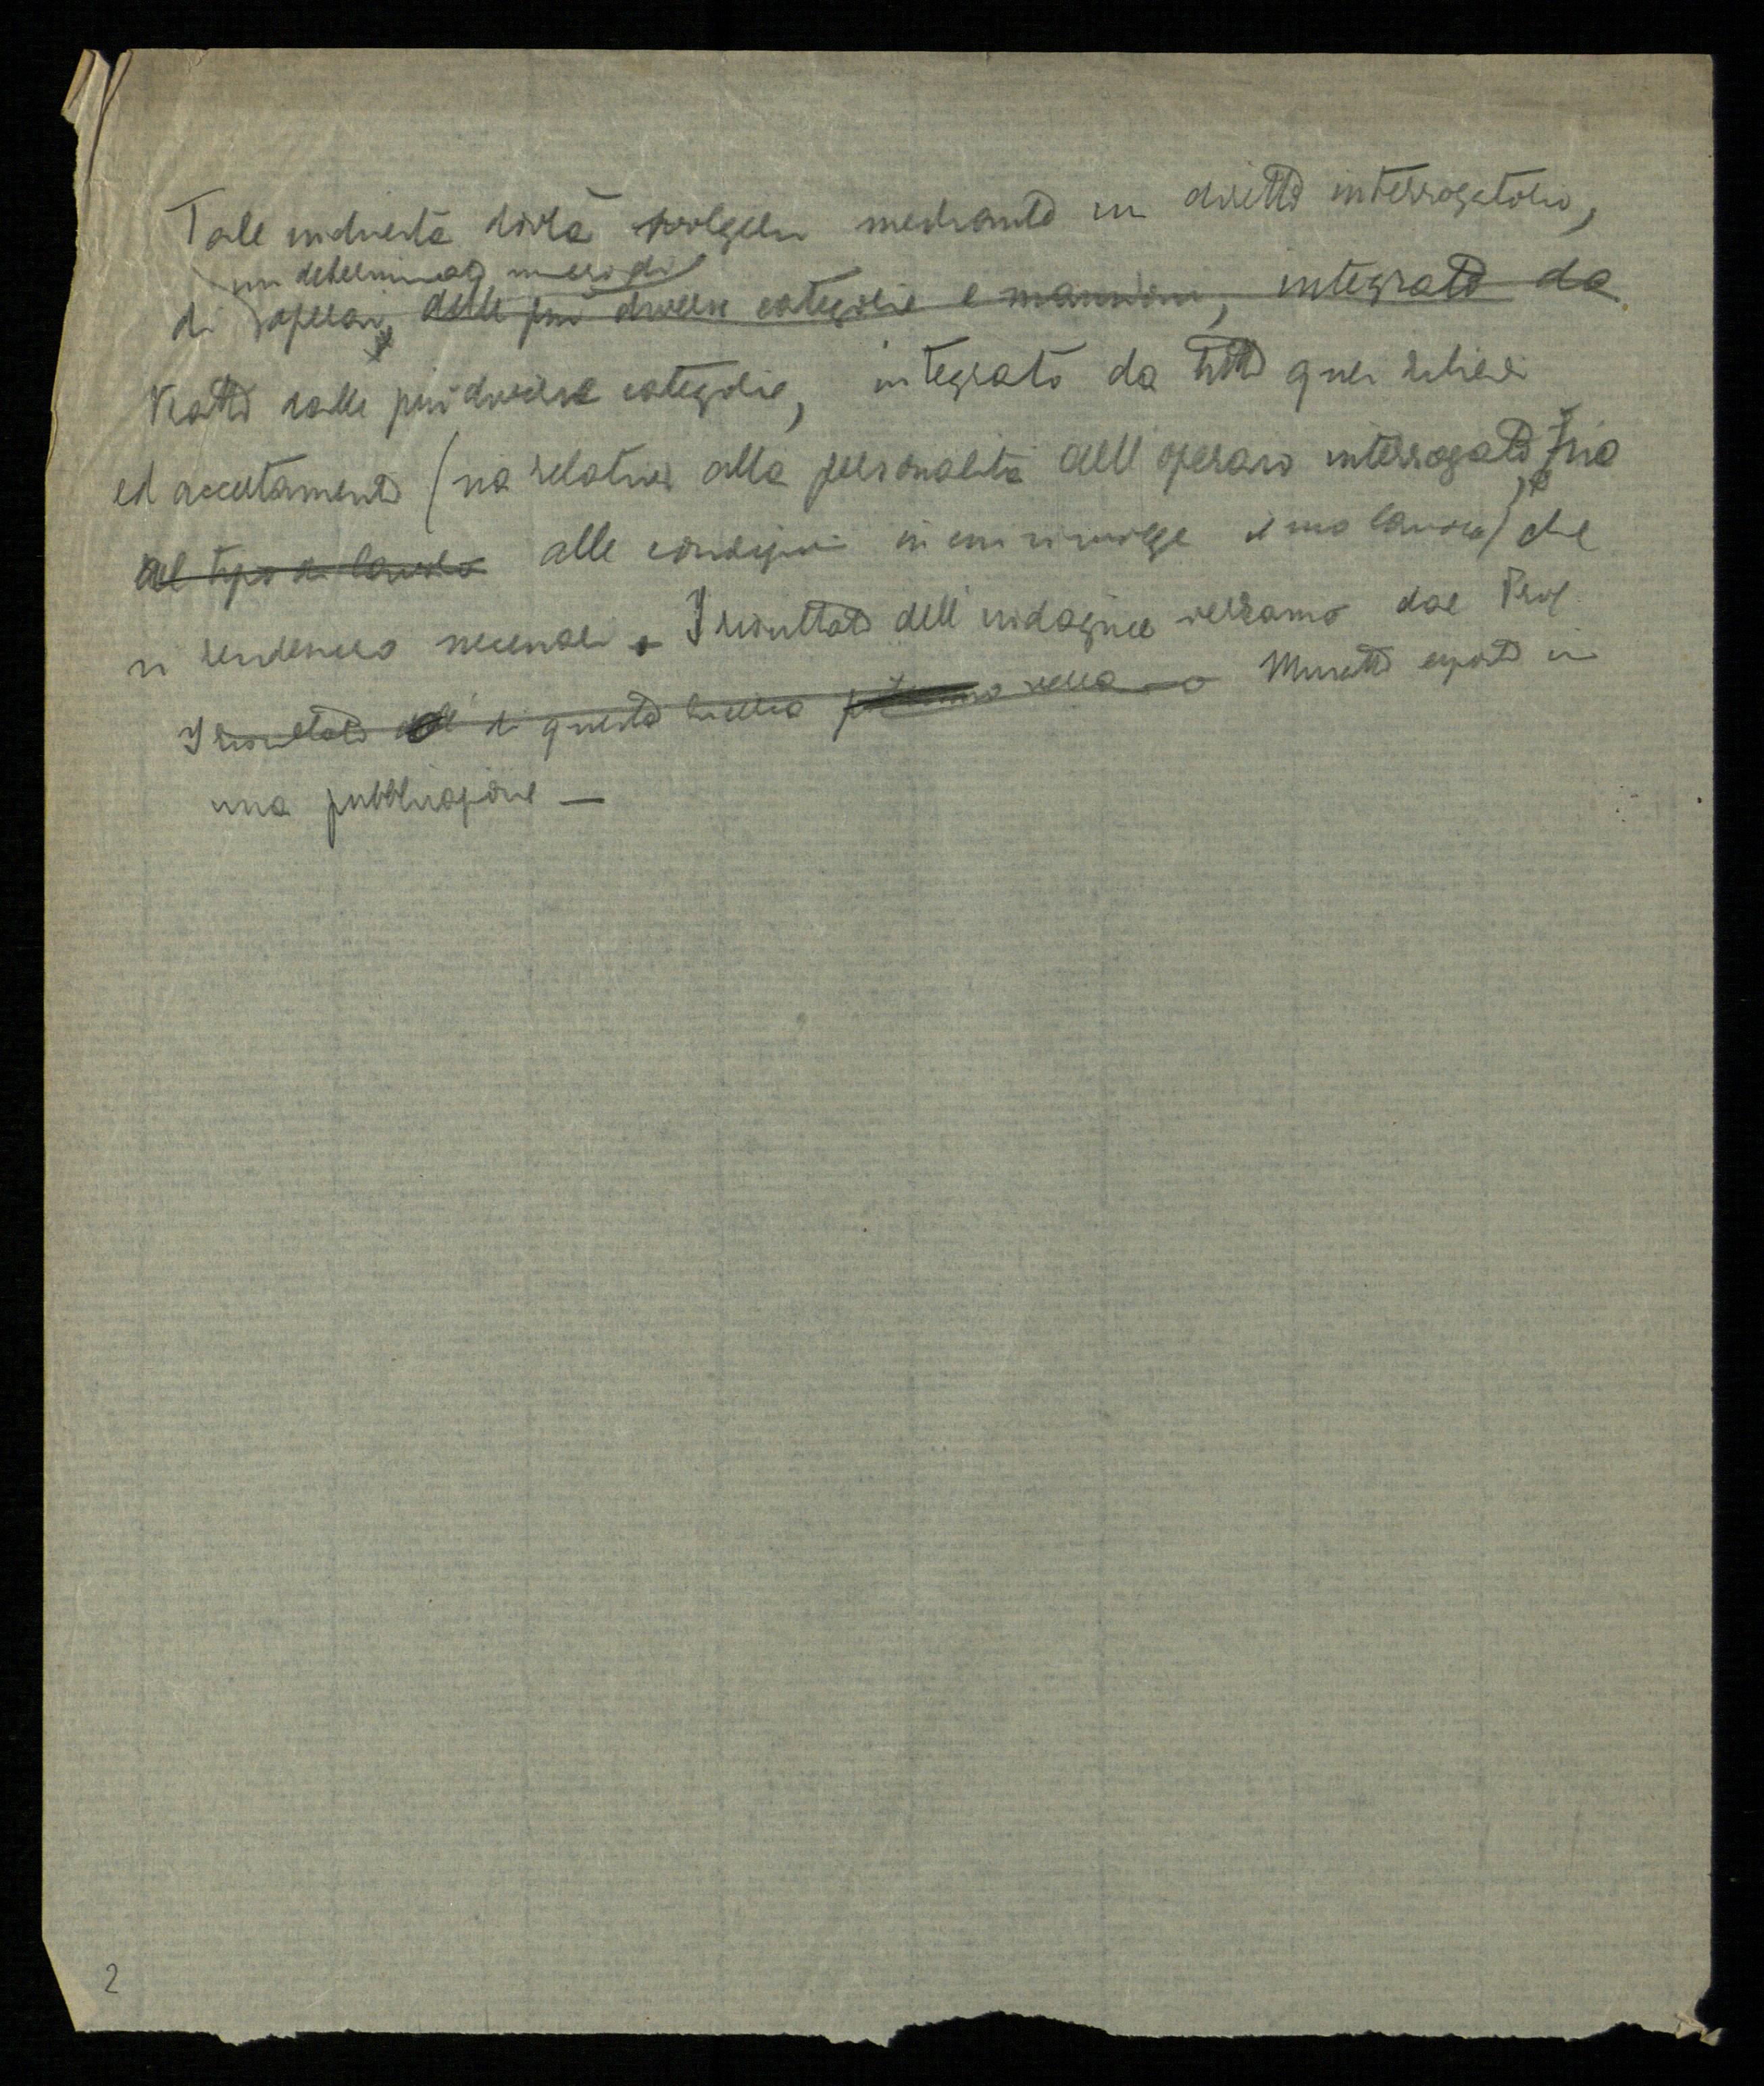 Tale inchiesta dovrà svolgersi mediante un diretto interrogatorio,
un determinato numero di
di operai, delle più diverse categorie e mansioni, integrato da
tratti dalle più diverse categorie, integrato da tutti quei rilievi
ed accertamenti (sia relativi alla personalità dell'operaio interrogato, sia
al tipo di lavoro alle condizioni in cui si svolge il suo lavoro) che
si rendessero necessari. I risultati dell'indagine verranno dal Prof.
I risultati dell di questa ricerca verranno Musatti esposti in
una pubblicazione —
2